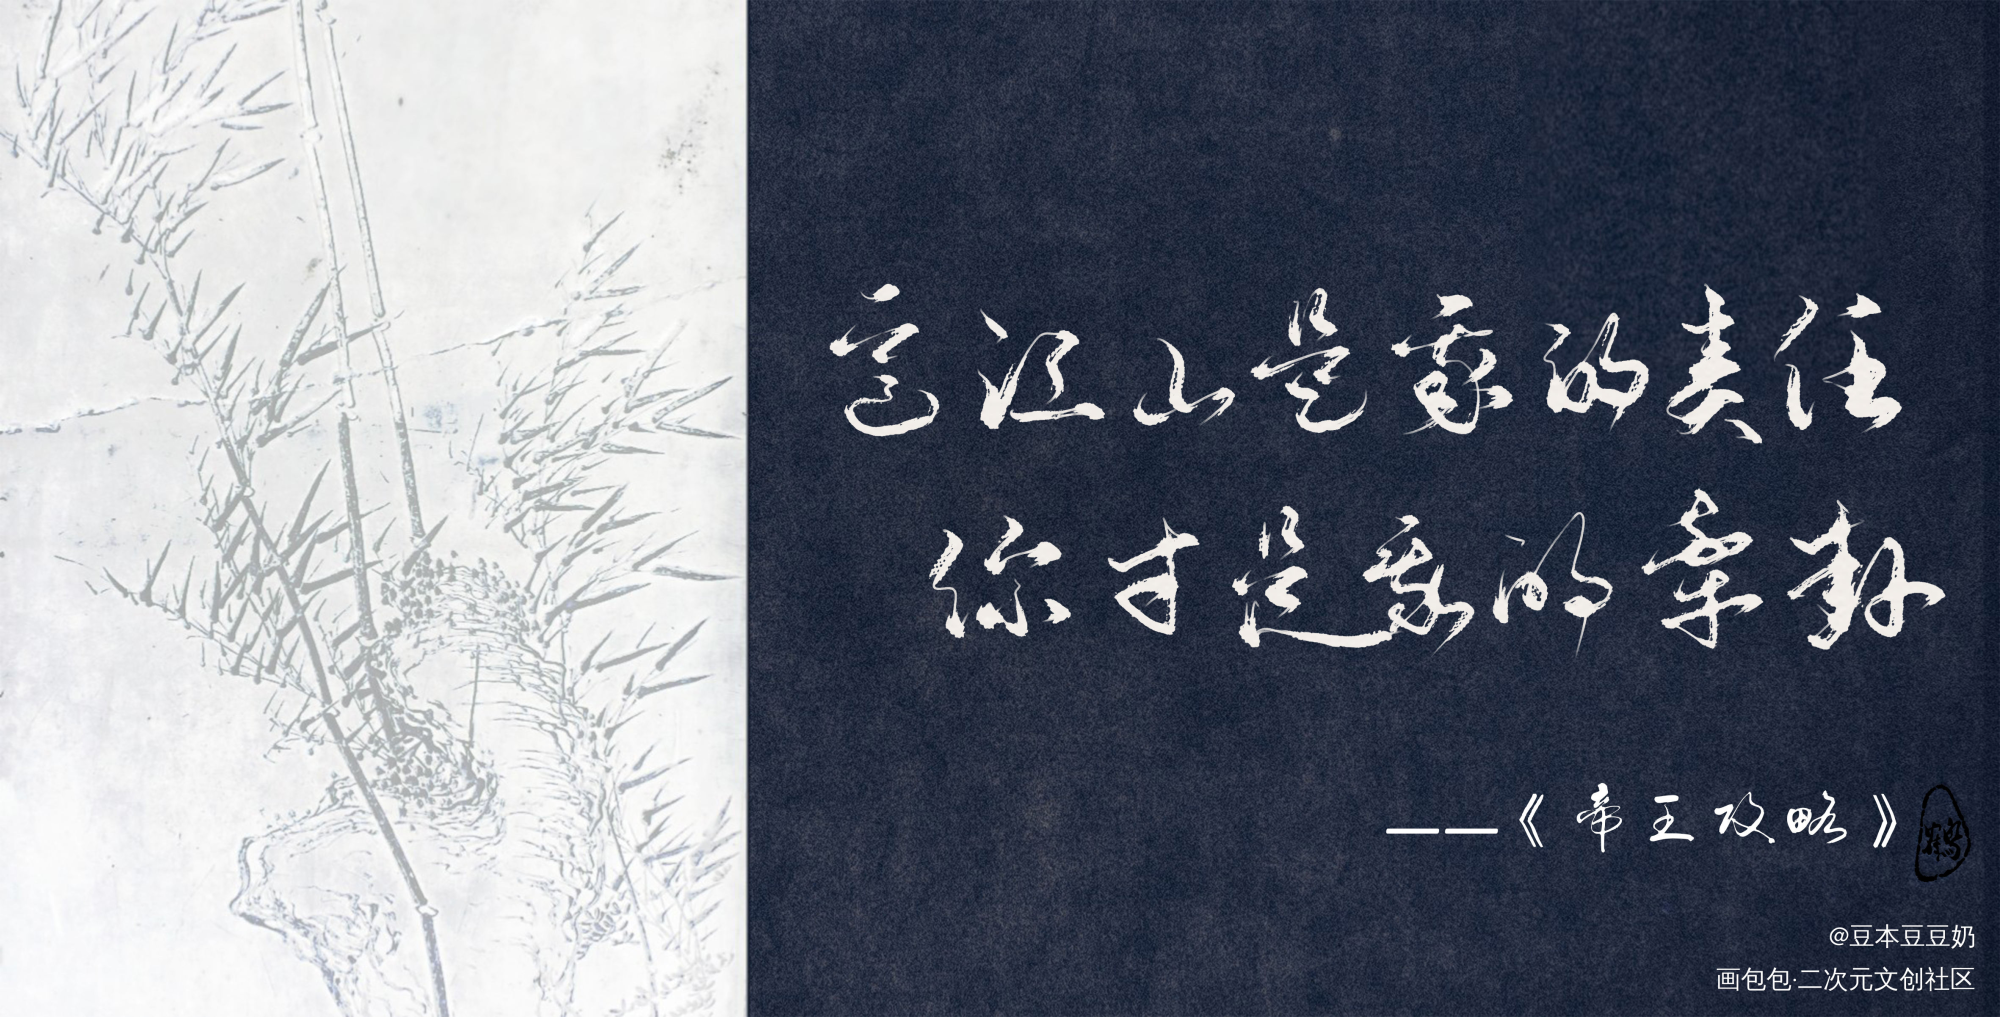 这江山是我的责任
你才是我的牵挂
——《帝王攻略》
鶴
@豆本豆豆奶
画包包·二次元文创社区